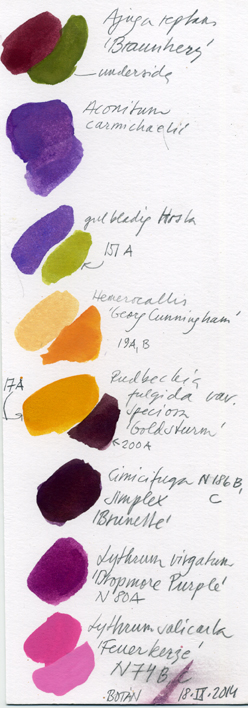 Ajuga reptans
'Braunherz'
underside
Aconitum
carmichaelii
gulbladig Hosta
151 A
Hemerocallis
'Georg Cunningham'
19A, B
17A
Rudbeckia
fulgida var.
speciosa
'Goldsturm'
200A
Cimicifuga N186B,
simplex C
'Brunette'
Lythrum virgatum
'Dropmore Purple'
N80A
Lythrum salicaria
'Feuerkerze'
N74B C
BOTAN 18.IX.2014